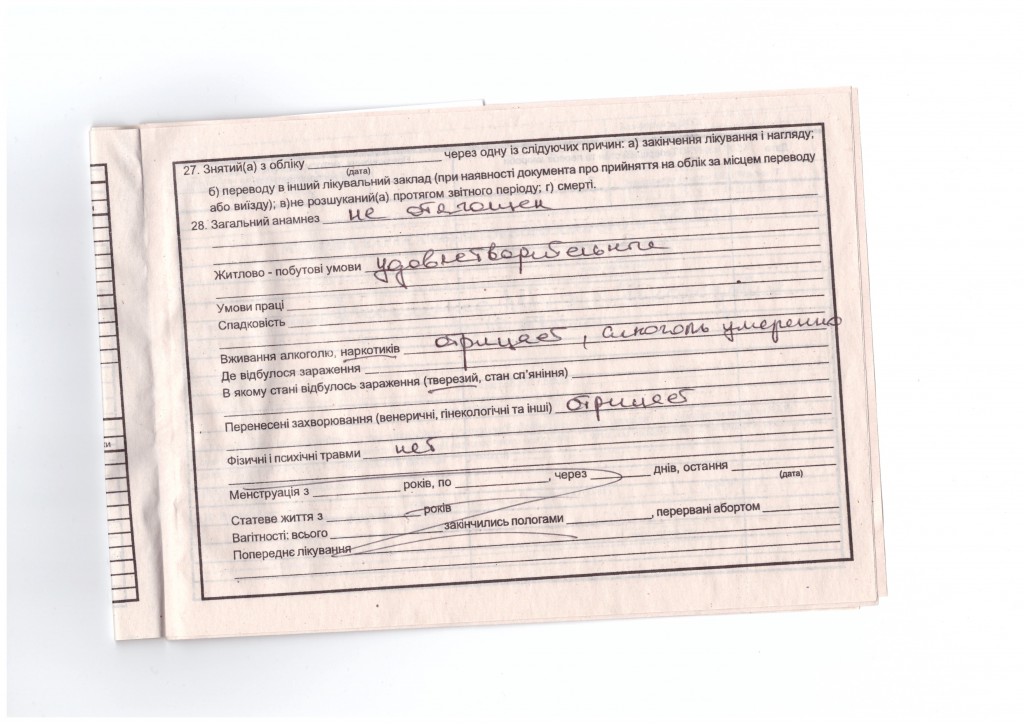 27. Знятий(а) з обліку ____________ через одну із слідуючих причин: а) закінчення лікування і нагляду;
(дата)
б) переводу в інший лікувальний заклад (при наявності документа про прийняття на облік за місцем переводу
або виїзду); в)не розшуканий(а) протягом звітного періоду; г) смерті.
28. Загальний анамнез не отягощен
Житлово - побутові умови удовлетворительные
Умови праці
Спадковість
Вживання алкоголю, наркотиків отрицает, алкоголь умеренно
Де відбулося зараження
В якому стані відбулось зараження (тверезий, стан сп'яніння)
Перенесені захворювання (венеричні, гінекологічні та інші) отрицает
Фізичні і психічні травми нет
Менструація з ____________ років, по ____________, через ________ днів, остання ____________
(дата)
Статеве життя з ____________ років
Вагітності: всього ____________ закінчились пологами ____________, перервані абортом ____________
Попереднє лікування